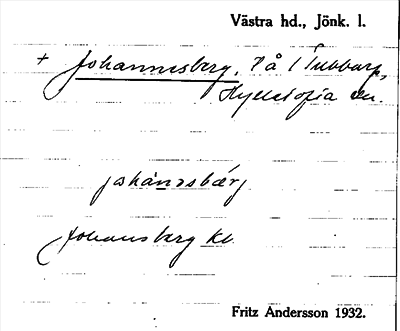 Västra hd., Jönk. l.
+ Johannesberg, På 1 Tubbarp,
Hylletofta sn.
johànəsbærj
Johansberg kl.
Fritz Andersson 1932.